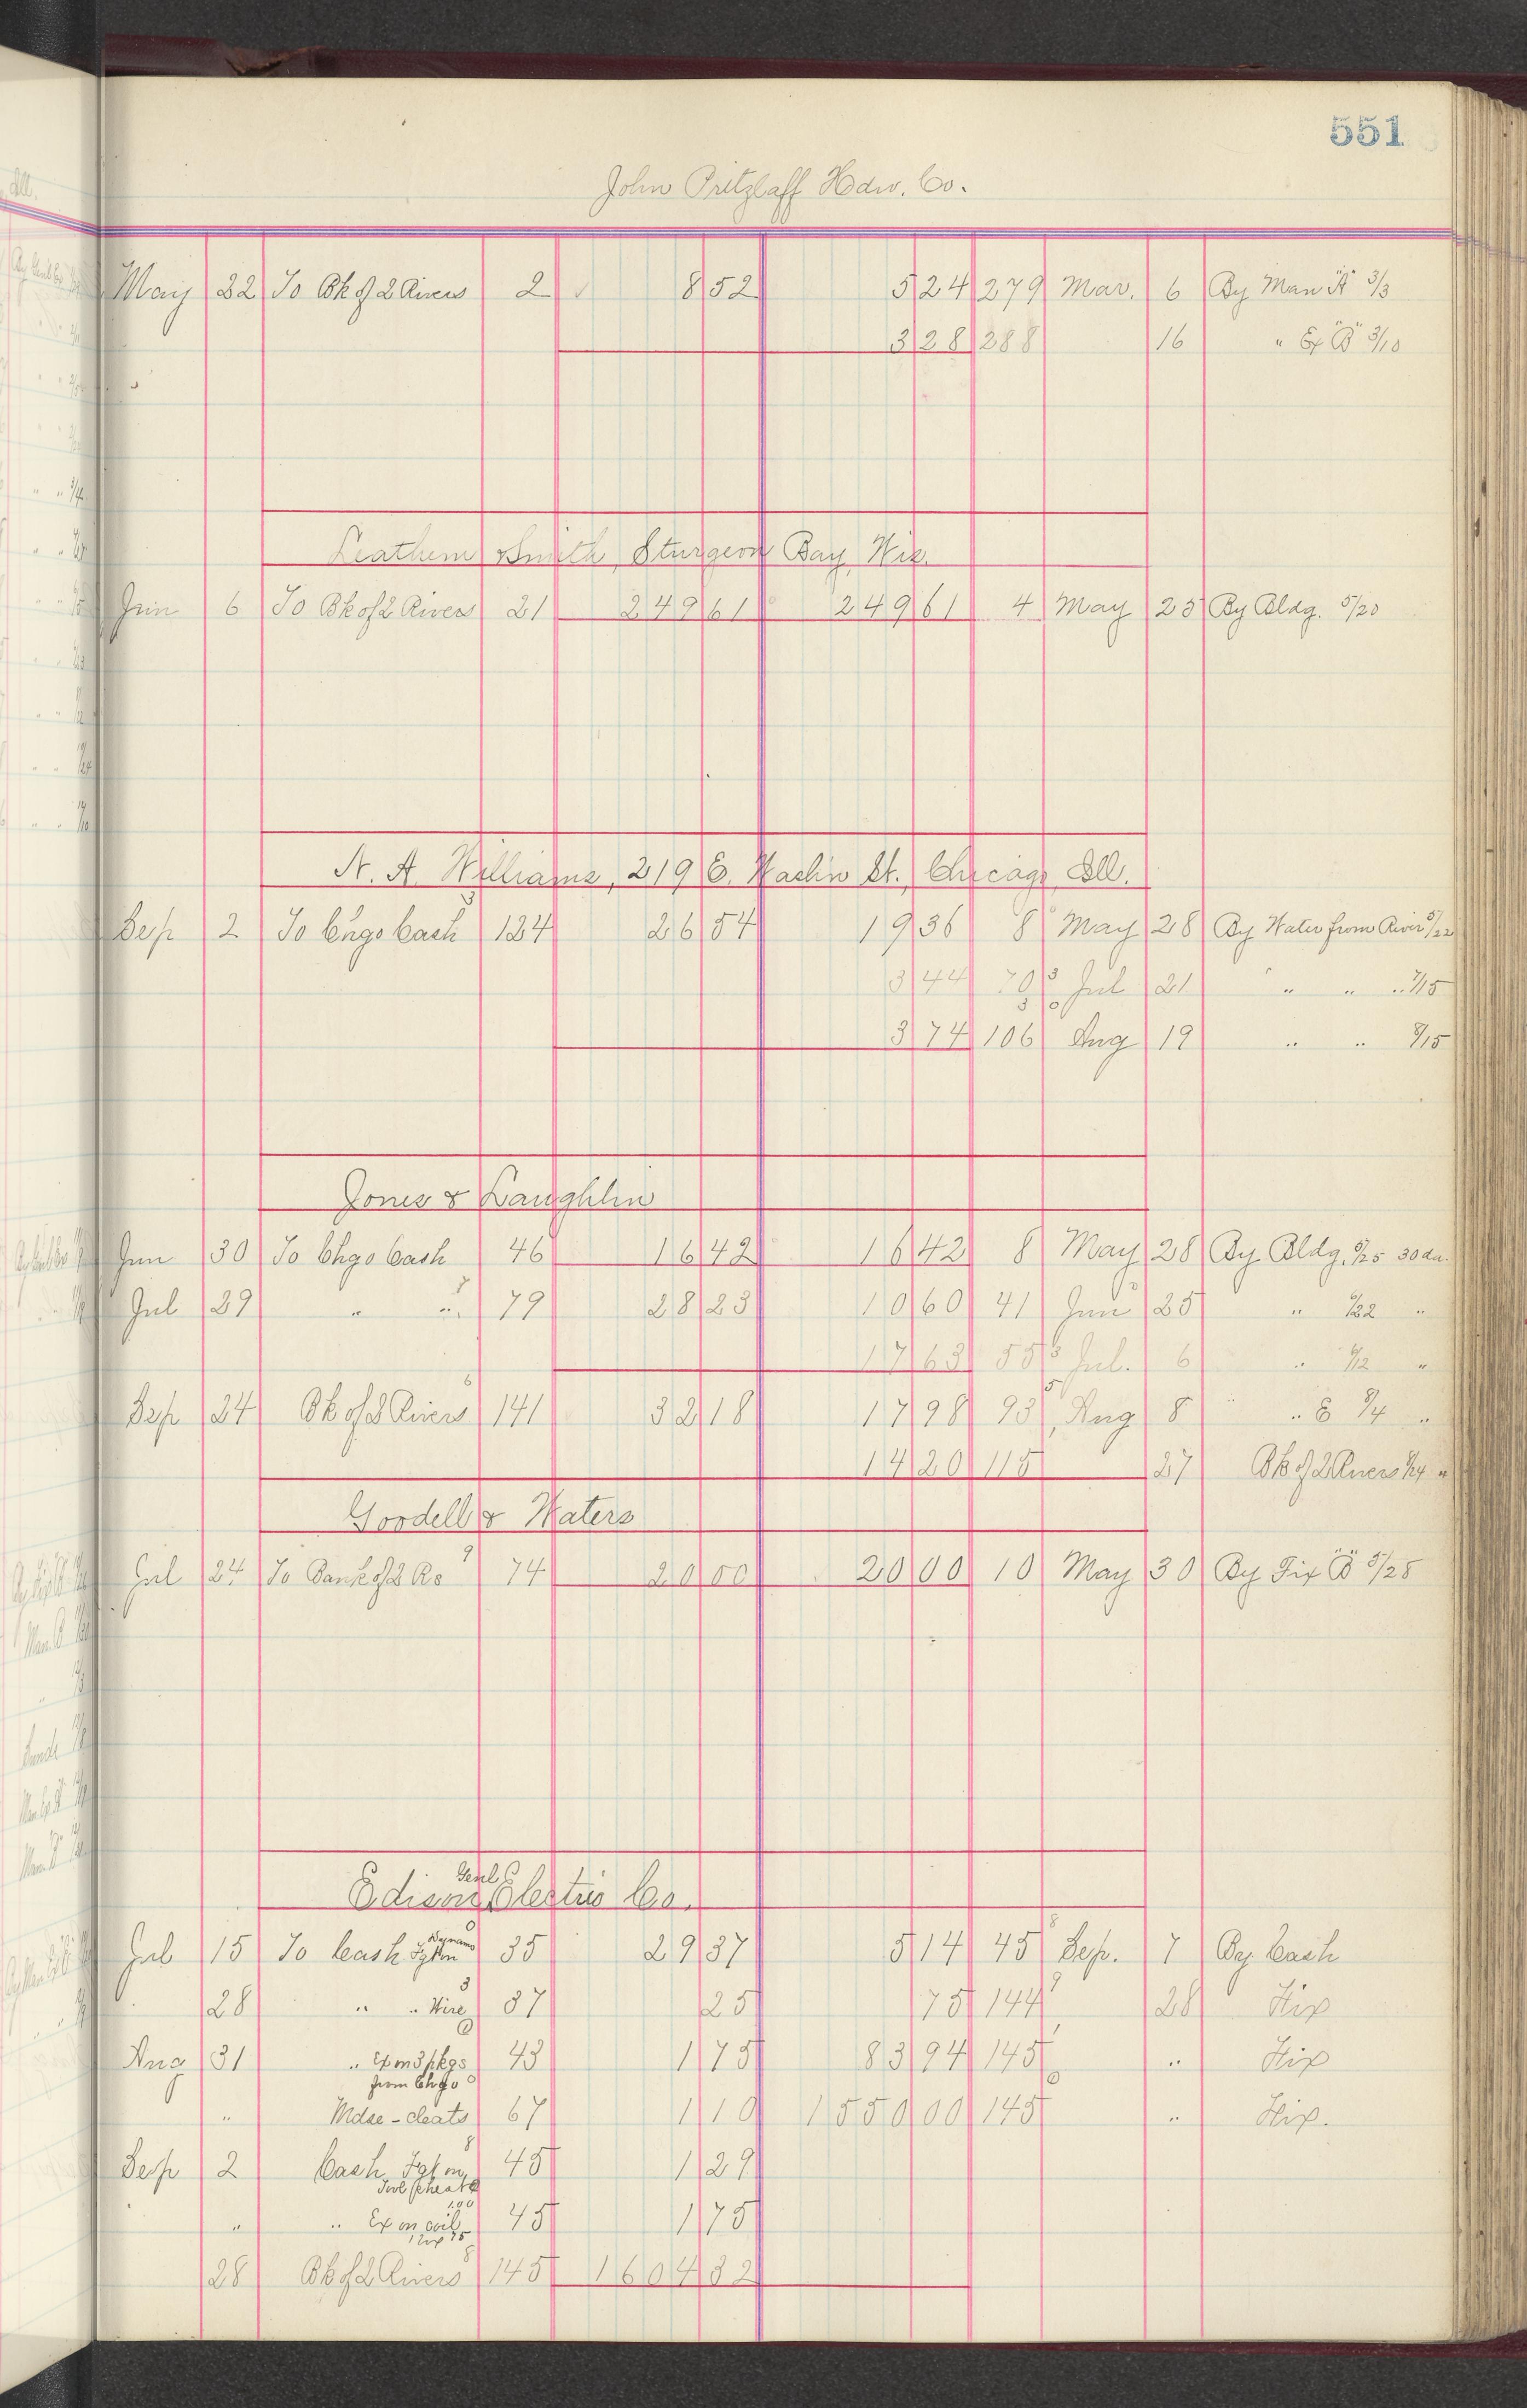 551
John Pritzlaff Hdw. Co.
May 22 To Bk of 2 Rivers 2 8 52 5 24 279 Mar. 6 By Man "A" 3/3
3 28 288 16 " Ex "B" 3/10
Leathem & Smith, Sturgeon Bay, Wis.
Jun 6 To Bk of 2 Rivers 21 249 61 249 61 4 May 23 By Bldg. 5/20
N. A. Williams, 219 E. Washn St. Chicago, Ill.
Sep 2 To Chgo Cash 124 26 54 19 36 8 May 28 By Water from River 5/22
3 44 70 Jul 21 " " " 7/15
3 74 106 Aug 19 " " 8/15
Jones & Laughlin
Jun 30 To Chgo Cash 46 16 42 16 42 8 May 28 By Bldg. 5/25 30 da.
Jul 29 " " 79 28 23 10 60 41 Jun 25 " 6/22 "
17 63 55 Jul. 6 " "
Sep 24 Bk of 2 Rivers 141 32 18 17 98 93 Aug 8 " E 8/4 "
14 20 115 27 Bk of 2 Rivers 8/24 "
Goodell & Waters
Jul 24 To Bank of 2 Rs 74 20 00 20 00 10 May 30 By Fix "B" 5/28
Edison Genl Electric Co.
Jul 15 To Cash Dynamo 35 29 37 5 14 45 Sep. 7 By Cash
28 " " Wire 37 25 75 144 28 Fix
Aug 31 " Ex on 3 pkgs 43 1 75 83 94 145 " Fix
from Chgo
" Mdse - cleats 67 1 10 1550 00 145 " Fix.
Sep 2 Cash Fgt on 45 1 29
" " Ex on coil 45 1 75
28 Bk of 2 Rivers 145 1604 32